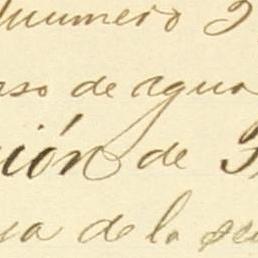 numero 2
rso de agua
ción de
a de la